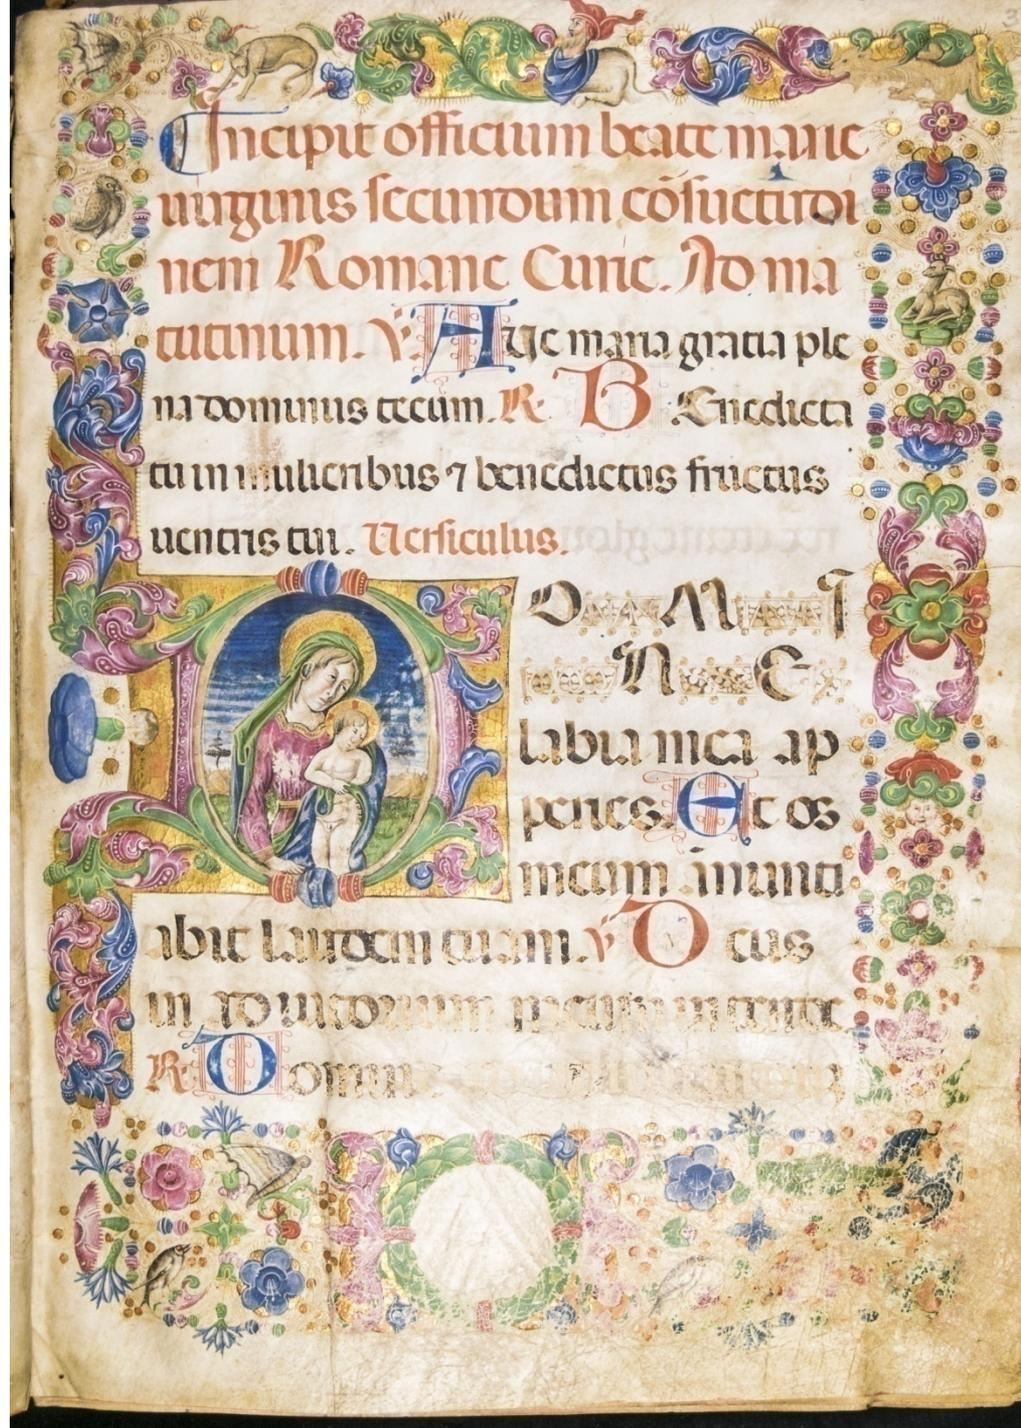 Incipit officium beate marie
uirginis secundum cōsuetudi
nem Romane Curie. Ad ma
tutinum. V Aue maria gratia ple
na dominus tecum. R. Benedicta
tu in mulieribus ⁊ benedictus fructus
uentris tui. Uersiculus.
DOMI
NE
labia mea ap
peries. Et os
meum annunti
abit laudem tuam. V Deus
in adiutorium meum intende
R. Domine